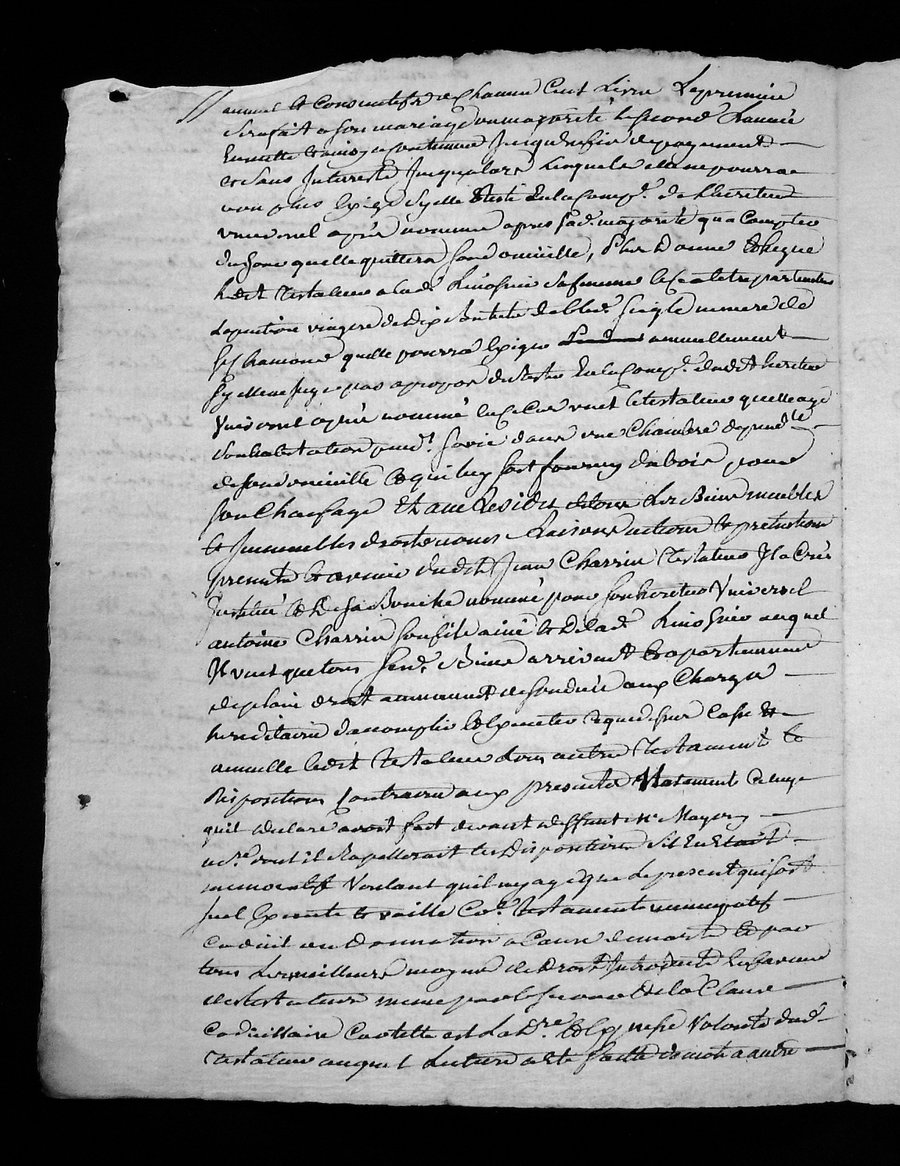 annuel et consecutifs de Chacun Cent Livres La premiere
sera fait a son mariage ou majorité le second l'année
Ensuitte et ainsi a continuer jusques a fin de payement
et sans Interests jusqu'alors Lesquels elle ne pourra
non plus Exiger sy elle Reste En la Comp.e de l'heritier
universel apres nommé apres sa d. majorité qu'a Compter
du jour quelle quittera son domicille, Plus donne et legue
Ledit testateur a la d. sa femme
La pention viagere de Dix de bled seigle mesure de
S.t Chamond quelle pourra Exiger annuellement
sy elle ne juge pas a propos de Rester En la Comp.e dudit heritier
Universel apres nommé Auquel Cas veut le testateur quelle aye
son habitation pend.t sa vie dans une Chambre depend.te
de son domicille et qui luy soit fourny du bois pour
son Chaufage Et au Residu de tous Les Biens meubles
et Immeubles droits noms Raisons actions et pretentions
presents et avenir dudit Jean Charrin testateur Il a Créé
Institué et De sa Bouche nommé pour son heritier Universel
antoine Charrin son fils ainé et De la d. auquel
Il veut que tous sesd. Biens arrivent et apartiennent
de plain droit au moment de son décès aux Charges
hereditaires d'accomplir et Executer ce que dessus Casse et
annulle ledit testateur tous autres testaments et
Dispositions Contraires aux presentes testament
quil declare avoit fait devant deffunt M.e Mayery
n.re dont il Rapellerait les Dispositions s'il En Etait
memoratif Voulant quil ny aye que Le present qui soit
seul Execute et vaille Co.e testament nuncupatif
Codicil ou Donnation a Cause de mort et par
tous Les meilleurs moyens de Droit Introduits En faveur
des testateurs meme par le secours de la Clause
Codicillaire Car telle est La D.re et Expresse Volonté dud.
testateur auquel Lecture a Eté faitte de mot a autre